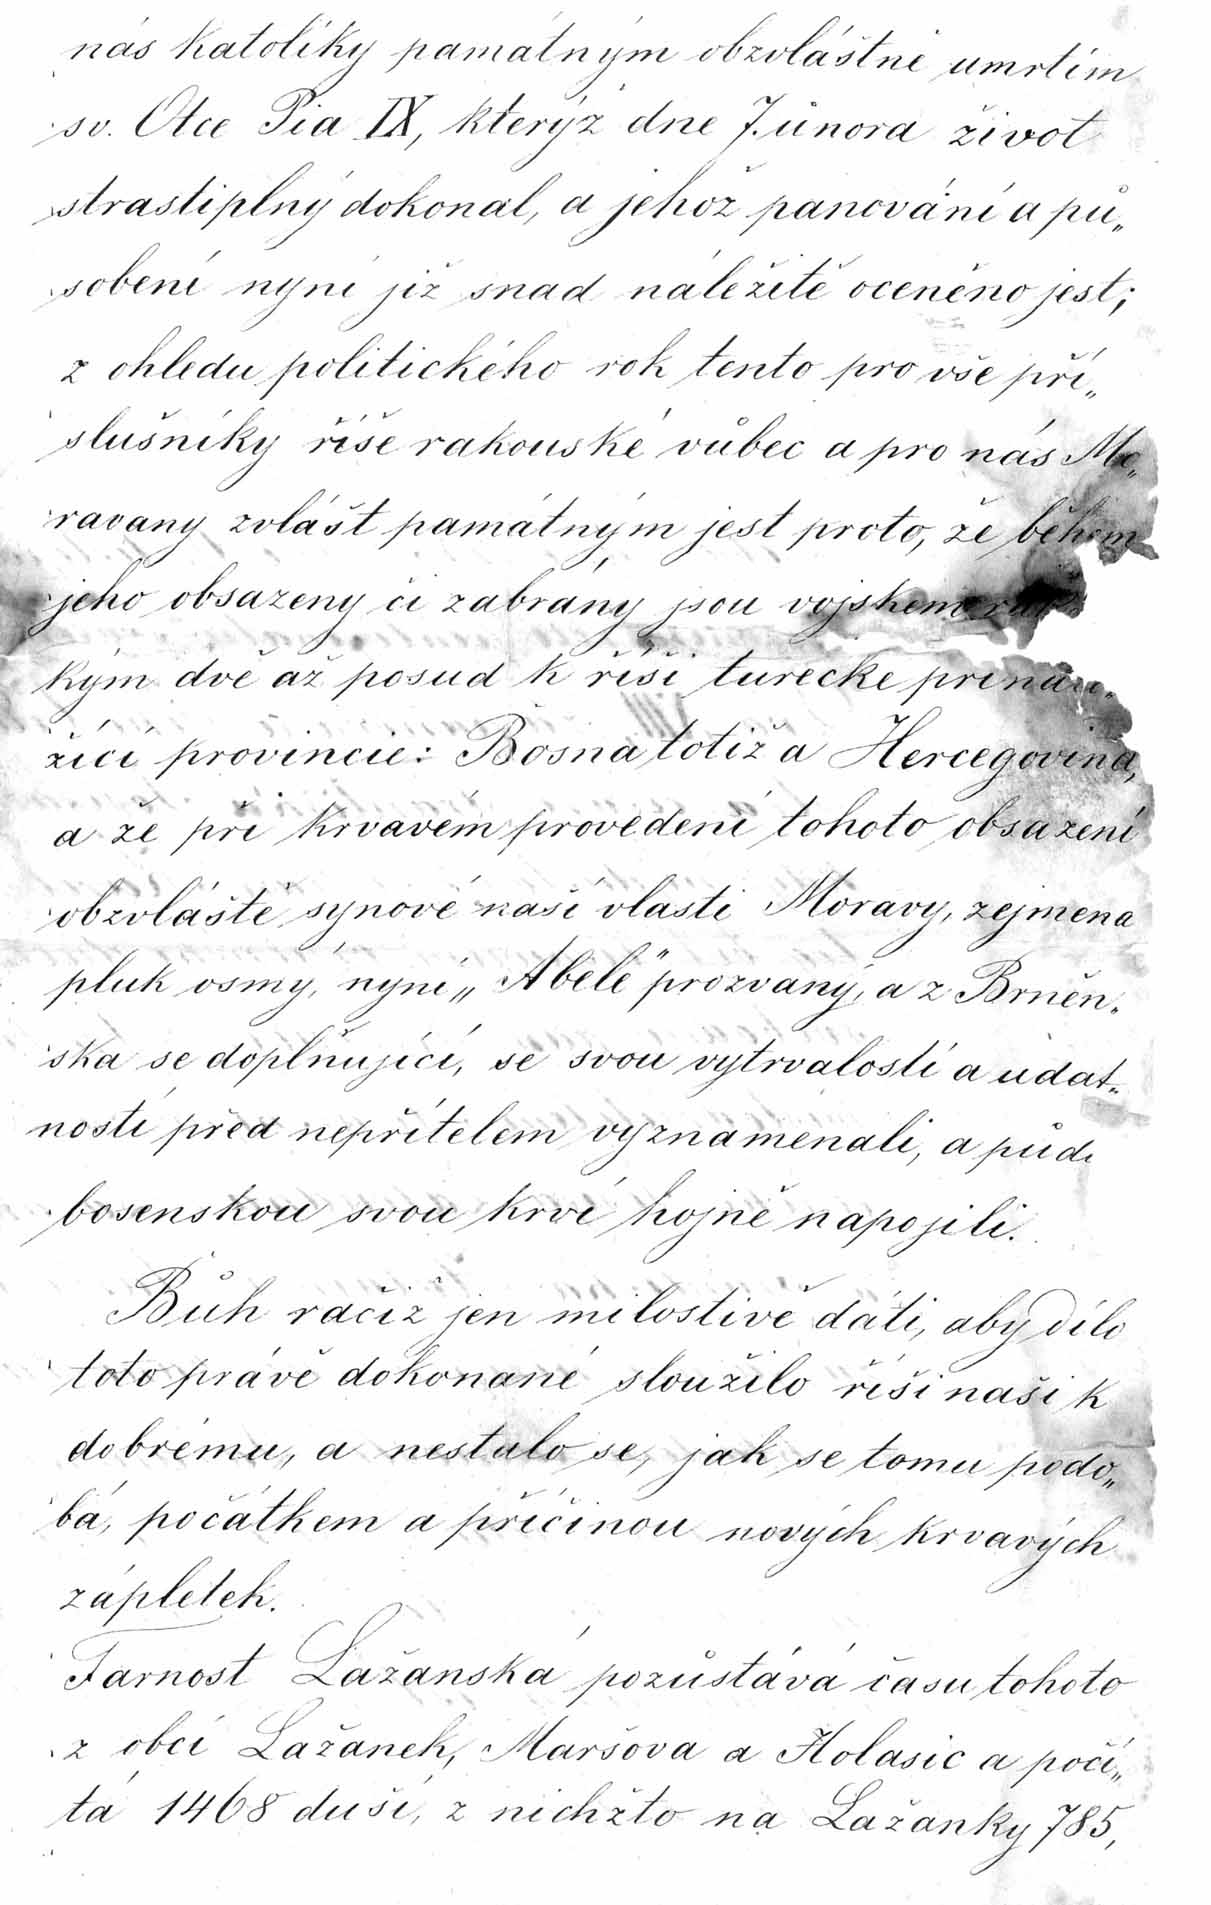 nás katolíky památným obzvláštně umrtím
sv. Otce Pia IX, kterýž dne 7. února život
strastiplný dokonal, a jehož panování a pů„
sobení nyní již snad náležitě oceněno jest;
z ohledu politického rok tento pro vše pří„
slušníky říše rakouské vůbec a pro nás Mo„
ravany zvlášt památným jest proto, že během
jeho obsazeny či zabrány jsou vojskem
kým dvě až posud k říši turecké
žící provincie: Bosna totiž a Hercegovina,
a že při krvavém provedení tohoto obsazení
obzvláště synové naší vlasti Moravy, zejmena
pluk osmý, nyní „Abele" prozvaný, a z Brněn„
ska se doplňující, se svou vytrvalostí a udat„
ností před nepřítelem vyznamenali, a půd
bosenskou svou krví hojně napojili.
Bůh račiž jen milostivě dáti, aby dílo
toto právě dokonané sloužilo říši naši k
dobrému, a nestalo se, jak se tomu podo„
bá, počátkem a příčinou nových krvavých
zápletek.
Farnost Lažanská pozůstává času tohoto
z obcí Lažanek, Maršova a Holasic a počí„
tá 1468 duší, z nichžto na Lažanky 785,